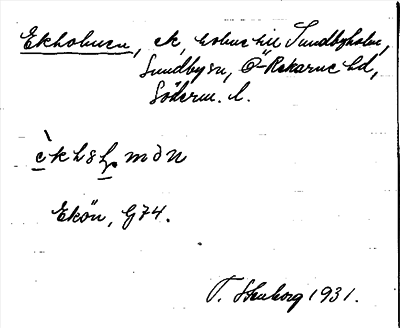 Ekholmen, ek, holme till Sundbyholm,
Sundby sn, Ö Rekarne hd,
Söderm. l.
Ekön, G74.
T. Stenborg 1931.